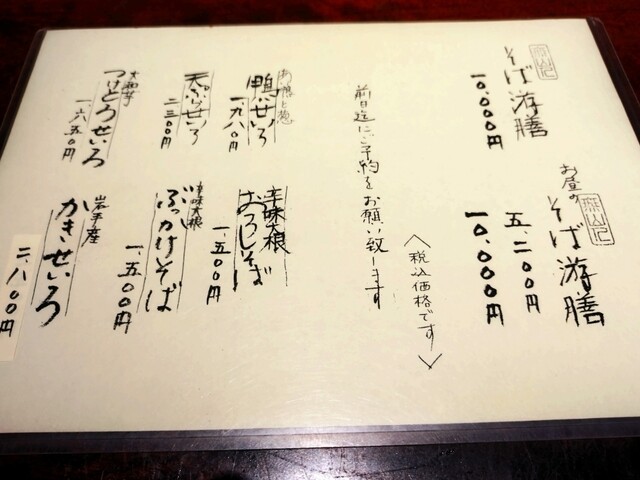 そば游膳
一〇、〇〇〇円
お昼の
そば游膳
五、二〇〇円
一〇、〇〇〇円
〈税込価格です〉
前日迄にご予約をお願い致します
鴨せいろ
一、九八〇円
天ぷらせいろ
二三〇〇円
大和芋
つけとろせいろ
一、六五〇円
辛味大根
おろしそば
一、五〇〇円
辛味大根
ぶっかけそば
一、五〇〇円
岩手産
かきせいろ
二、八〇〇円